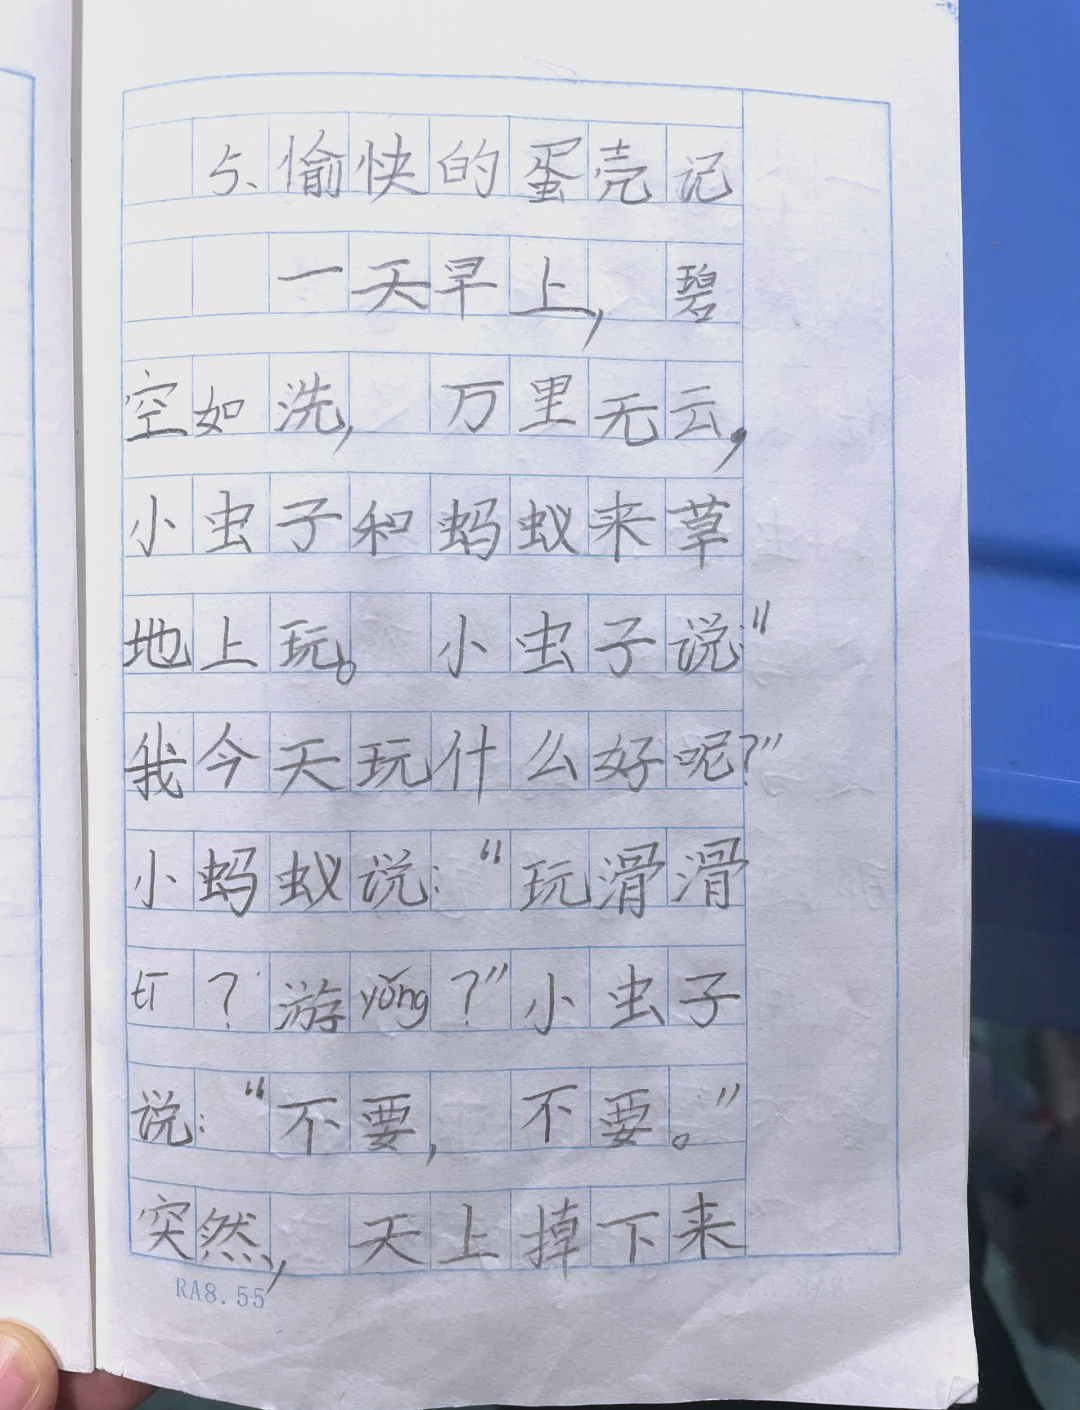 5、愉快的蛋壳记
一天早上，碧
空如洗，万里无云，
小虫子和蚂蚁来草
地上玩。小虫子说:"
我今天玩什么好呢?"
小蚂蚁说:"玩滑滑
tī?游yǒng?"小虫子
说:"不要,不要。"
突然,天上掉下来
RA8.55